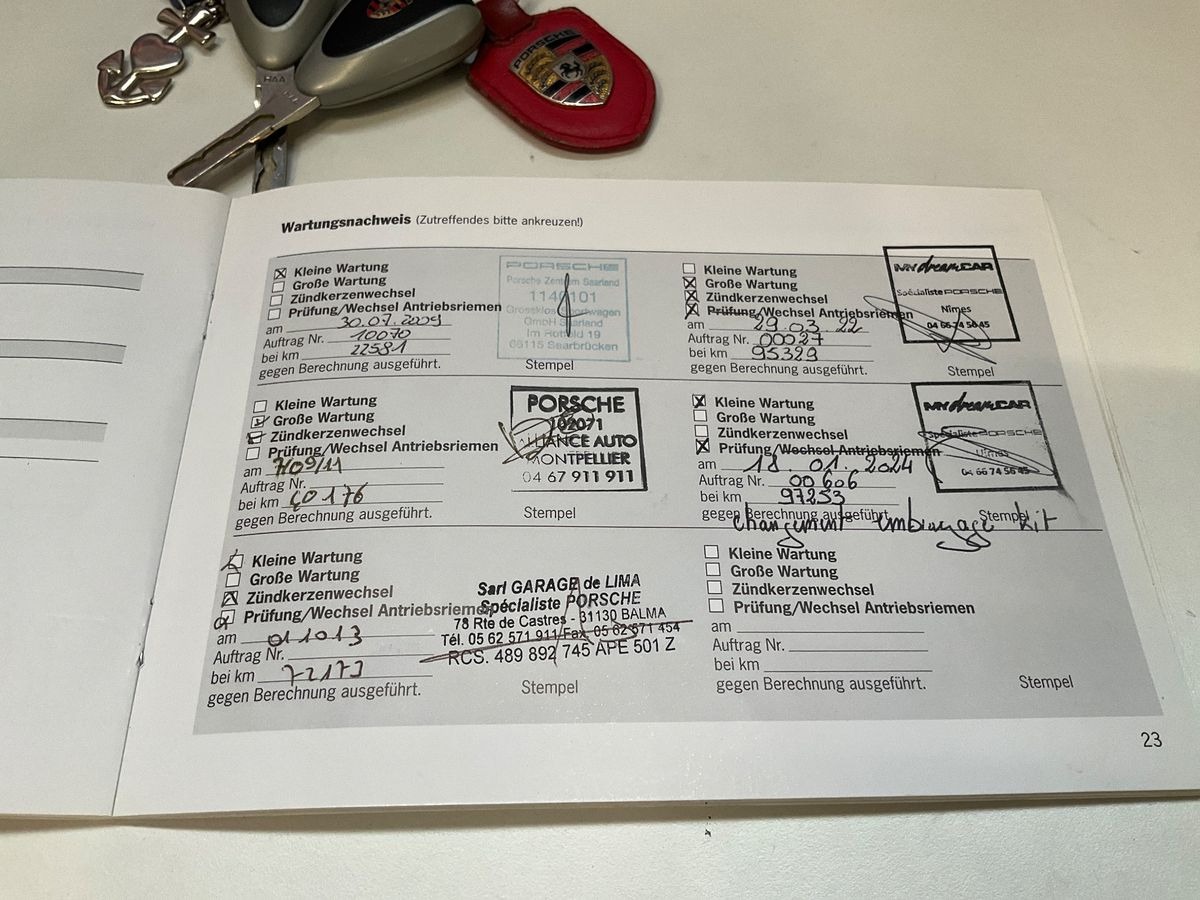 PORSCHE
Wartungsnachweis (Zutreffendes bitte ankreuzen!)
Kleine Wartung
Große Wartung
Zündkerzenwechsel
Prüfung/Wechsel Antriebsriemen
am 30.07.2009
Auftrag Nr. 10070
bei km 22581
gegen Berechnung ausgeführt.
PORSCHE
Porsche Zentrum Saarland
1140101
Grossklos Sportwagen
GmbH Saarland
Im Rotfeld 19
66115 Saarbrücken
Stempel
Kleine Wartung
Große Wartung
Zündkerzenwechsel
Prüfung/Wechsel Antriebsriemen
am 7/09/11
Auftrag Nr.
bei km 40176
gegen Berechnung ausgeführt.
PORSCHE
102071
ALLIANCE AUTO
MONTPELLIER
04 67 911 911
Stempel
Kleine Wartung
Große Wartung
Zündkerzenwechsel
Prüfung/Wechsel Antriebsriemen
am 011013
Auftrag Nr.
bei km 72173
gegen Berechnung ausgeführt.
Sarl GARAGE de LIMA
Spécialiste PORSCHE
78 Rte de Castres - 31130 BALMA
Tél. 05 62 571 911 Fax. 05 62 571 454
RCS. 489 892 745 APE 501 Z
Stempel
Kleine Wartung
Große Wartung
Zündkerzenwechsel
Prüfung/Wechsel Antriebsriemen
am 29.03.22
Auftrag Nr. 00027
bei km 95329
gegen Berechnung ausgeführt.
MY dreamCAR
Spécialiste PORSCHE
Nîmes
04 66 74 56 45
Stempel
Kleine Wartung
Große Wartung
Zündkerzenwechsel
Prüfung/Wechsel Antriebsriemen
am 18.01.2024
Auftrag Nr. 00606
bei km 97253
gegen Berechnung ausgeführt.
changement embrayage kit
MY dreamCAR
Spécialiste PORSCHE
Nîmes
04 66 74 56 45
Stempel
Kleine Wartung
Große Wartung
Zündkerzenwechsel
Prüfung/Wechsel Antriebsriemen
am
Auftrag Nr.
bei km
gegen Berechnung ausgeführt.
Stempel
23